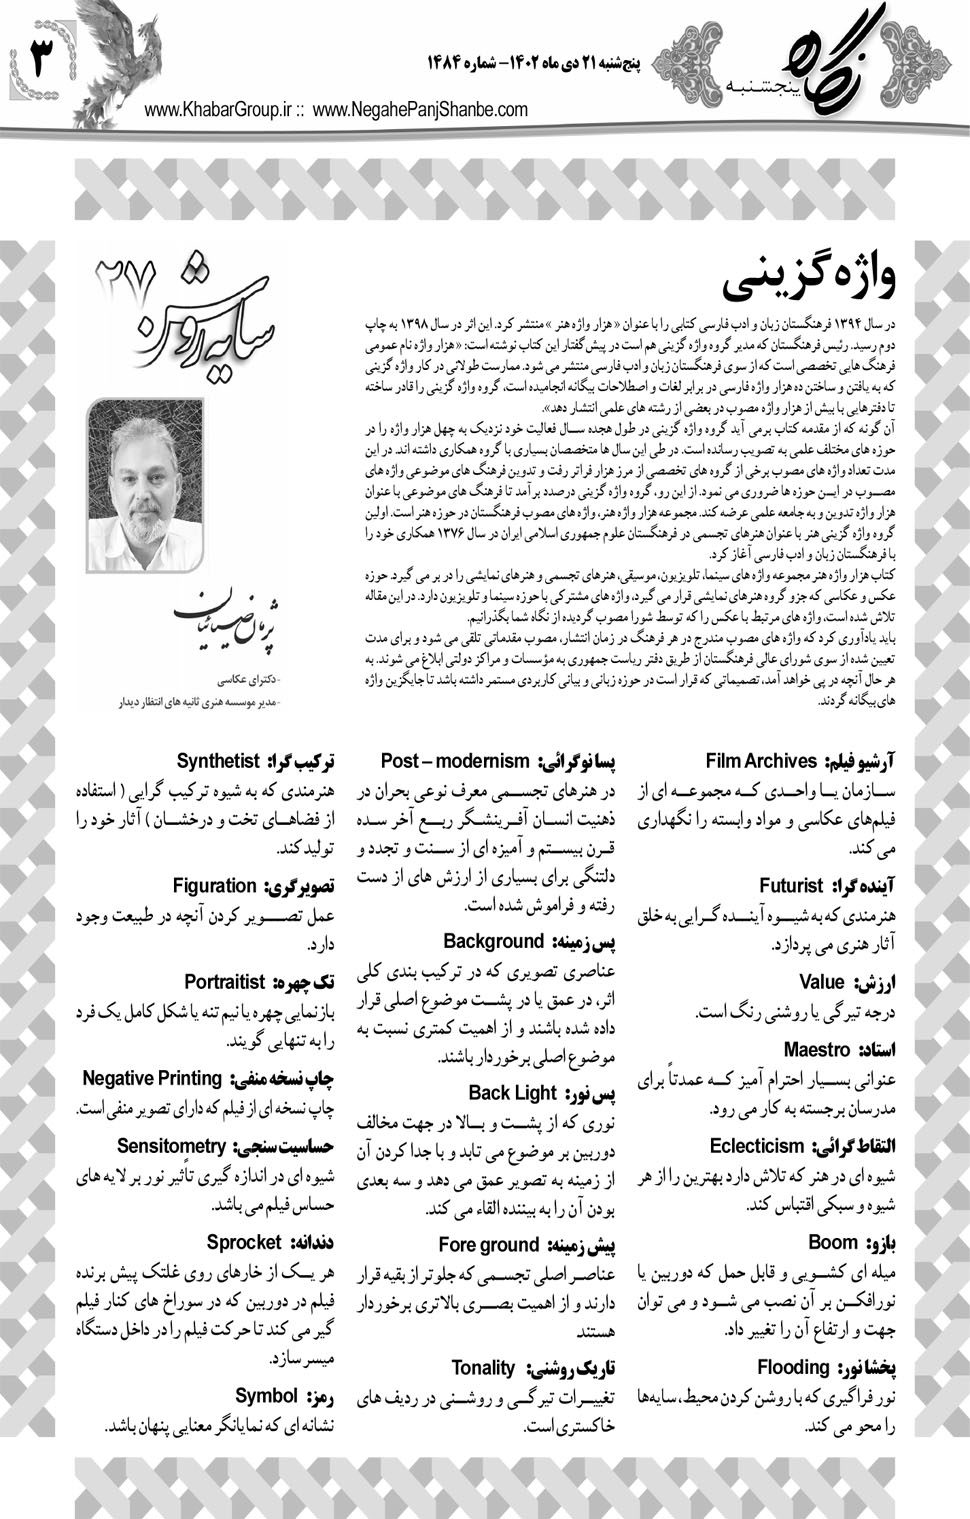 ۳
پنج‌شنبه ۲۱ دی ماه ۱۴۰۲- شماره ۱۴۸۴
نگاه
پنجشنبه
www.KhabarGroup.ir :: www.NegahePanjShanbe.com
واژه گزینی
در سال ۱۳۹۴ فرهنگستان زبان و ادب فارسی کتابی را با عنوان « هزار واژه هنر » منتشر کرد. این اثر در سال ۱۳۹۸ به چاپ
دوم رسید. رئیس فرهنگستان که مدیر گروه واژه گزینی هم است در پیش گفتار این کتاب نوشته است: « هزار واژه نام عمومی
فرهنگ هایی تخصصی است که از سوی فرهنگستان زبان و ادب فارسی منتشر می شود. ممارست طولانی در کار واژه گزینی
که به یافتن و ساختن ده هزار واژه فارسی در برابر لغات و اصطلاحات بیگانه انجامیده است، گروه واژه گزینی را قادر ساخته
تا دفترهایی با بیش از هزار واژه مصوب در بعضی از رشته های علمی انتشار دهد».
آن گونه که از مقدمه کتاب برمی آید گروه واژه گزینی در طول هجده سال فعالیت خود نزدیک به چهل هزار واژه را در
حوزه های مختلف علمی به تصویب رسانده است. در طی این سال ها متخصصان بسیاری با گروه همکاری داشته اند. در این
مدت تعداد واژه های مصوب برخی از گروه های تخصصی از مرز هزار فراتر رفت و تدوین فرهنگ های موضوعی واژه های
مصوب در این حوزه ها ضروری می نمود. از این رو، گروه واژه گزینی درصدد برآمد تا فرهنگ های موضوعی با عنوان
هزار واژه تدوین و به جامعه علمی عرضه کند. مجموعه هزار واژه هنر، واژه های مصوب فرهنگستان در حوزه هنر است. اولین
گروه واژه گزینی هنر با عنوان هنرهای تجسمی در فرهنگستان علوم جمهوری اسلامی ایران در سال ۱۳۷۶ همکاری خود را
با فرهنگستان زبان و ادب فارسی آغاز کرد.
کتاب هزار واژه هنر مجموعه واژه های سینما، تلویزیون، موسیقی، هنرهای تجسمی و هنرهای نمایشی را در بر می گیرد. حوزه
عکس و عکاسی که جزو گروه هنرهای نمایشی قرار می گیرد، واژه های مشترکی با حوزه سینما و تلویزیون دارد. در این مقاله
تلاش شده است، واژه های مرتبط با عکس را که توسط شورا مصوب گردیده از نگاه شما بگذرانیم.
باید یادآوری کرد که واژه های مصوب مندرج در هر فرهنگ در زمان انتشار، مصوب مقدماتی تلقی می شود و برای مدت
تعیین شده از سوی شورای عالی فرهنگستان از طریق دفتر ریاست جمهوری به مؤسسات و مراکز دولتی ابلاغ می شوند. به
هر حال آنچه در پی خواهد آمد، تصمیماتی که قرار است در حوزه زبانی و بیانی کاربردی مستمر داشته باشد تا جایگزین واژه
های بیگانه گردند.
سایه روشن ۲۷
پژمان ضیائیان
-دکترای عکاسی
-مدیر موسسه هنری ثانیه های انتظار دیدار
آرشیو فیلم: Film Archives
سازمان یا واحدی که مجموعه ای از
فیلم‌های عکاسی و مواد وابسته را نگهداری
می کند.
آینده گرا: Futurist
هنرمندی که به شیوه آینده گرایی به خلق
آثار هنری می پردازد.
ارزش: Value
درجه تیرگی یا روشنی رنگ است.
استاد: Maestro
عنوانی بسیار احترام آمیز که عمدتاً برای
مدرسان برجسته به کار می رود.
التقاط گرائی: Eclecticism
شیوه ای در هنر که تلاش دارد بهترین را از هر
شیوه و سبکی اقتباس کند.
بازو: Boom
میله ای کشویی و قابل حمل که دوربین یا
نورافکن بر آن نصب می شود و می توان
جهت و ارتفاع آن را تغییر داد.
پخشا نور: Flooding
نور فراگیری که با روشن کردن محیط، سایه‌ها
را محو می کند.
پسا نوگرائی: Post – modernism
در هنرهای تجسمی معرف نوعی بحران در
ذهنیت انسان آفرینشگر ربع آخر سده
قرن بیستم و آمیزه ای از سنت و تجدد و
دلتنگی برای بسیاری از ارزش های از دست
رفته و فراموش شده است.
پس زمینه: Background
عناصری تصویری که در ترکیب بندی کلی
اثر، در عمق یا در پشت موضوع اصلی قرار
داده شده باشند و از اهمیت کمتری نسبت به
موضوع اصلی برخوردار باشند.
پس نور: Back Light
نوری که از پشت و بالا در جهت مخالف
دوربین بر موضوع می تابد و با جدا کردن آن
از زمینه به تصویر عمق می دهد و سه بعدی
بودن آن را به بیننده القاء می کند.
پیش زمینه: Fore ground
عناصر اصلی تجسمی که جلوتر از بقیه قرار
دارند و از اهمیت بصری بالاتری برخوردار
هستند
تاریک روشنی: Tonality
تغییرات تیرگی و روشنی در ردیف های
خاکستری است.
ترکیب گرا: Synthetist
هنرمندی که به شیوه ترکیب گرایی ( استفاده
از فضاهای تخت و درخشان ) آثار خود را
تولید کند.
تصویرگری: Figuration
عمل تصویر کردن آنچه در طبیعت وجود
دارد.
تک چهره: Portraitist
بازنمایی چهره یا نیم تنه یا شکل کامل یک فرد
را به تنهایی گویند.
چاپ نسخه منفی: Negative Printing
چاپ نسخه ای از فیلم که دارای تصویر منفی است.
حساسیت سنجی: Sensitometry
شیوه ای در اندازه گیری تأثیر نور بر لایه های
حساس فیلم می باشد.
دندانه: Sprocket
هر یک از خارهای روی غلتک پیش برنده
فیلم در دوربین که در سوراخ های کنار فیلم
گیر می کند تا حرکت فیلم را در داخل دستگاه
میسر سازد.
رمز: Symbol
نشانه ای که نمایانگر معنایی پنهان باشد.